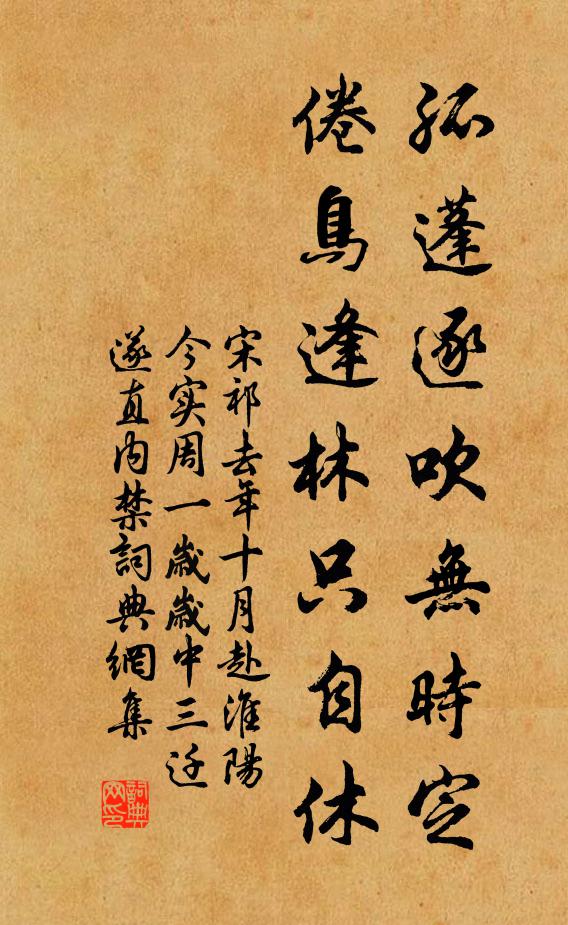 孤蓬逐吹無時定
倦鳥逢林只自休
宋祁去年十月赴淮陽
今实周一歲歲中三迁
遂直内禁詞典網集
詞典
网印